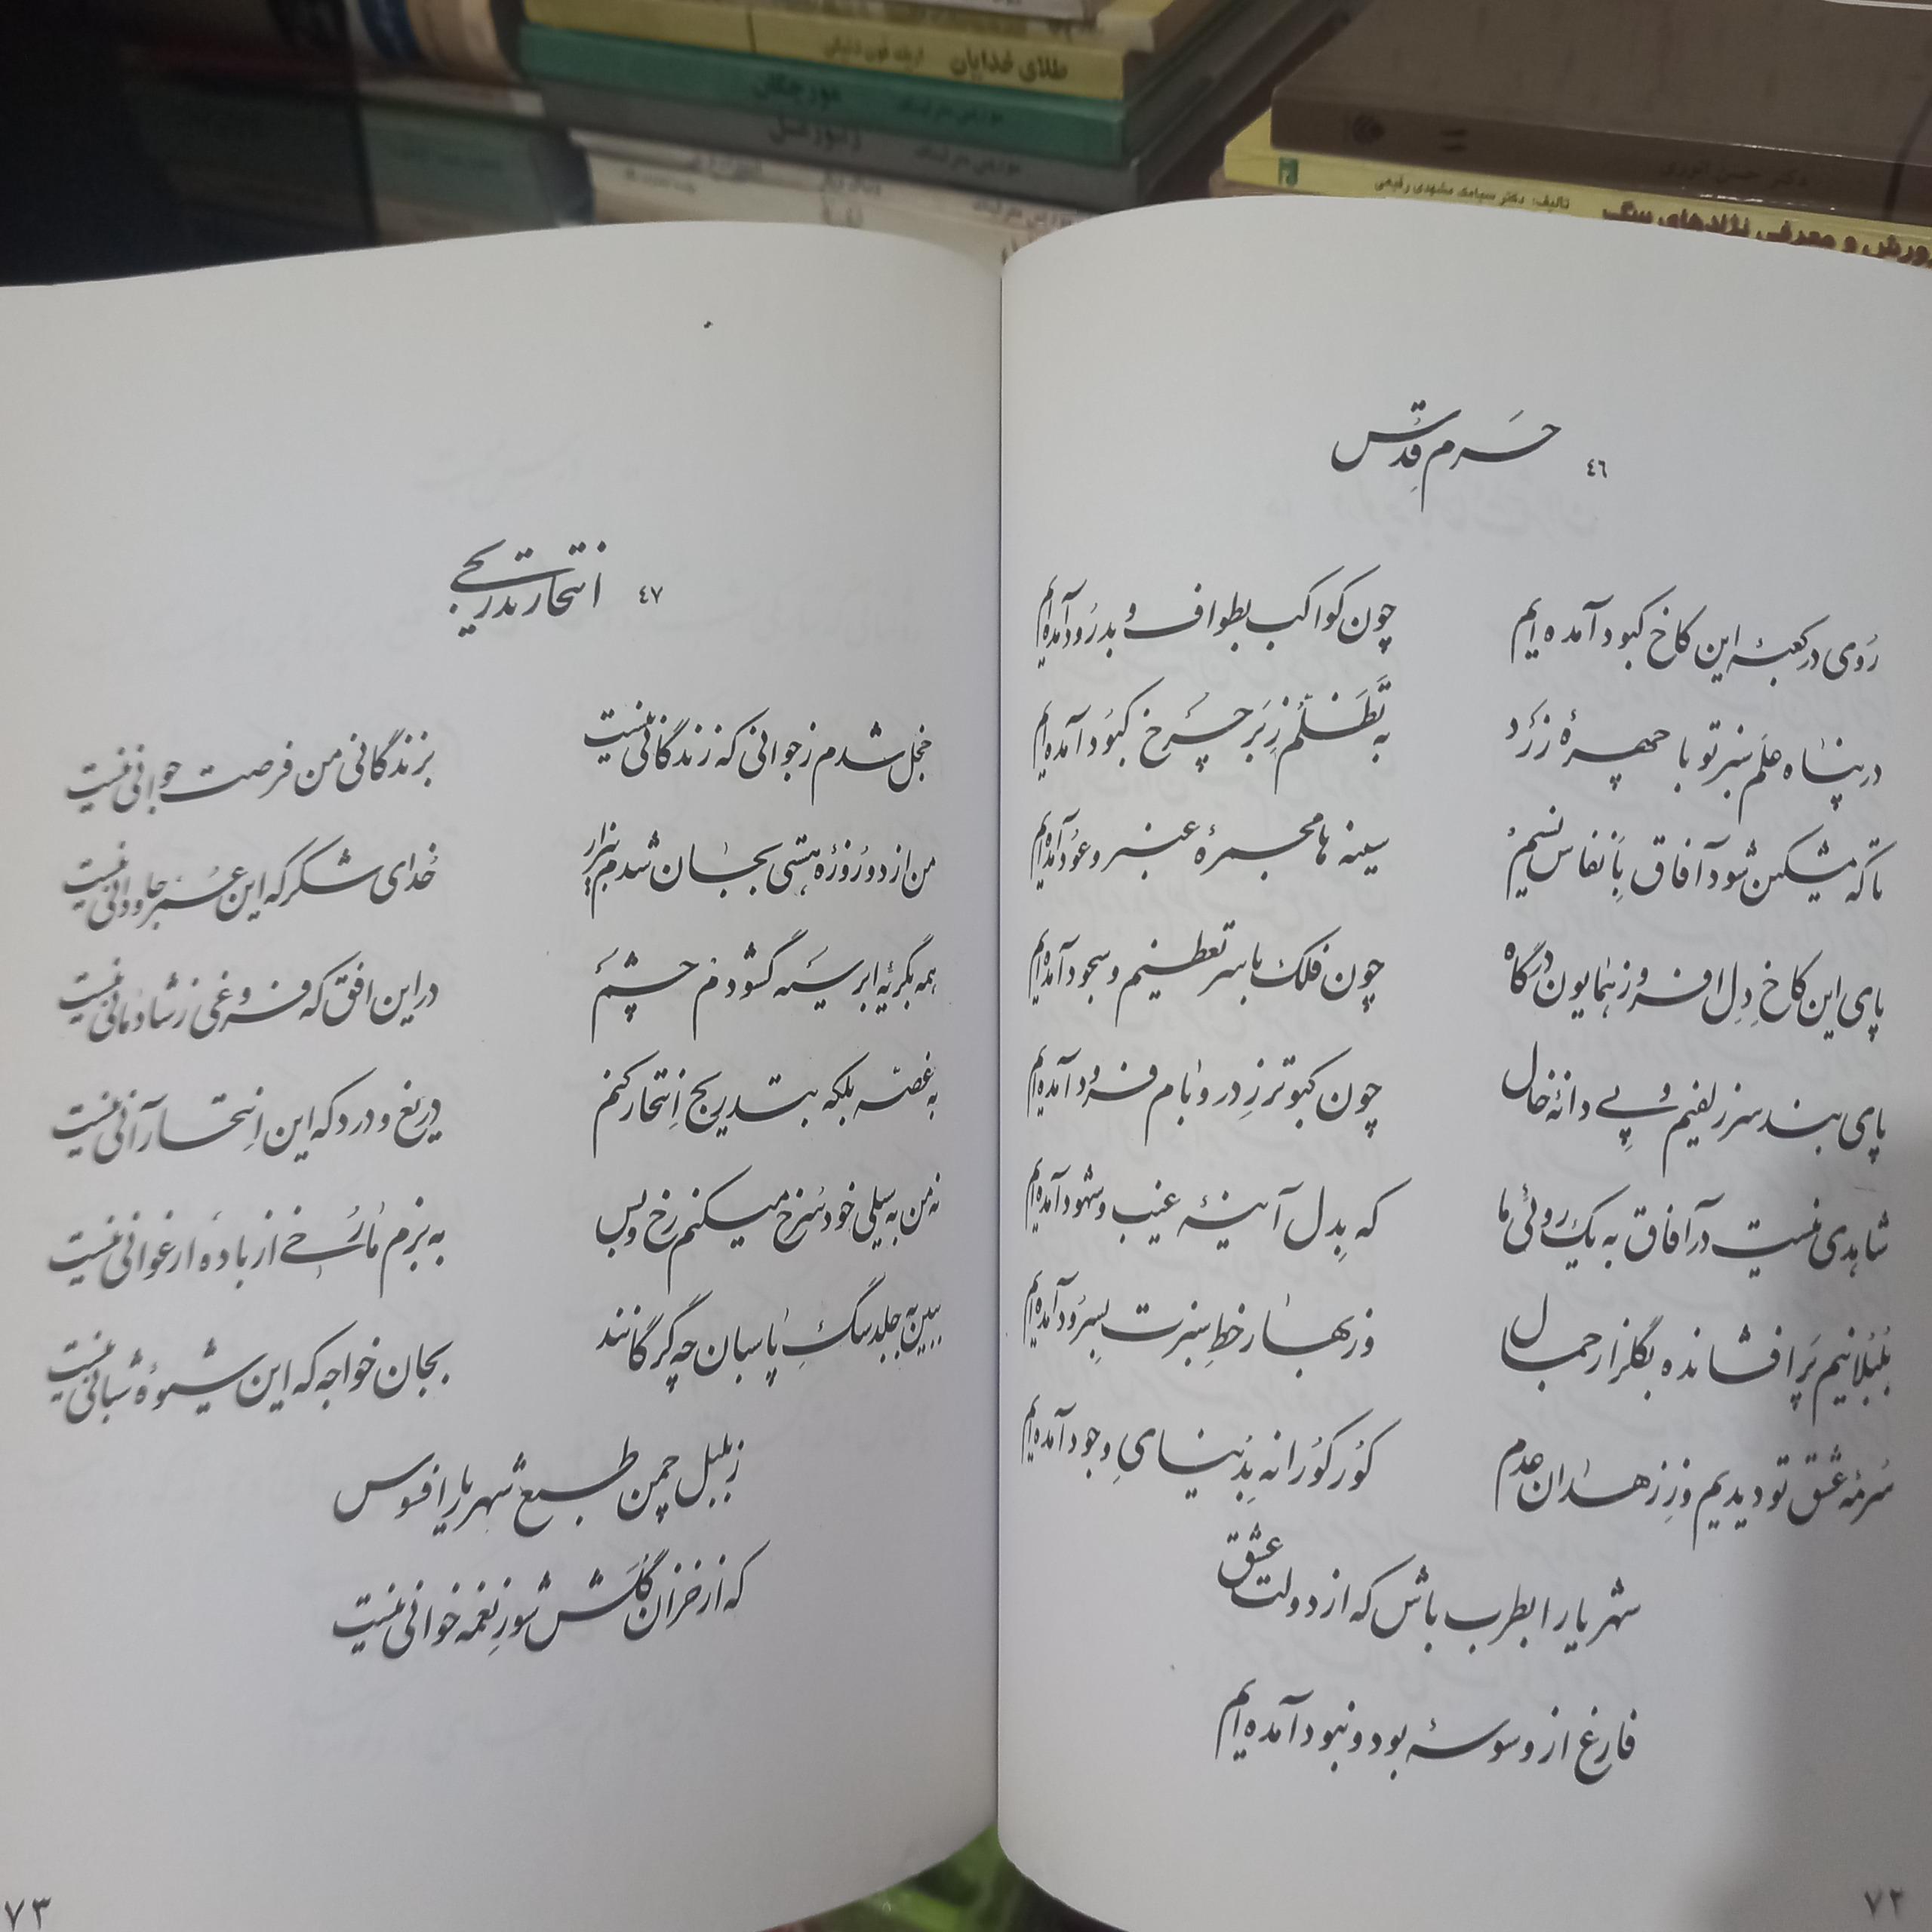 طلای خدایان
مورچگان
زنبور عسل
دکتر حسن انوری
تالیف: دکتر سیامک مشهدی رفیعی
پرورش و معرفی نژادهای سگ
٤٦ حَرم قُدس
رُوی در کعبهٔ این کاخ کبود آمده ایم
چون کواکب بطواف و بدرُود آمده ایم
در پناه علَم سبز تو با چهرهٔ زرد
به تَظَلُّم زِ بَرِ چرخ کبُود آمده ایم
تا که مشکین شود آفاق بِاَنفاس نسیم
سینه ها مجمرهٔ عنبر و عُود آمده ایم
پای این کاخ دِل افروز همایون درگاه
چون فلک با سر تعظیم و سجود آمده ایم
پای بند سر زلفیم و پِی دانهٔ خال
چون کبوتر زِ در و بام فرود آمده ایم
شاهدی نیست در آفاق به یک روئی ما
که بِدل آینهٔ غیب و شهود آمده ایم
بُلبُلانیم پَر افشانده بگلزار جمال
وز بهار خطِ سبزت بسِرُود آمده ایم
سُرمهٔ عشق تو دیدیم و زِ زهدان عدم
کور کورانه بِدُنیای وجود آمده ایم
شهریارا بطرب باش که از دولت عشق
فارغ از وسوسهٔ بود و نبود آمده ایم
٧٢
٤٧ انتحار تدریجی
خجل شدم ز جوانی که زندگانی نیست
بزندگانی من فرصت جوانی نیست
من از دو رُوزهٔ هستی بجان شدم بیزار
خُدای شکر که این عُمر جاودانی نیست
همه بگریهٔ ابر سیَه گشودم چشم
در این افق که فروغی ز شادمانی نیست
به غصه بلکه بتدریج اِنتحار کنم
دریغ و درد که این اِنتحار آنی نیست
نه من به سیلی خود سُرخ میکنم رخ و بس
به بزم ما رُخی از بادهٔ ارغوانی نیست
ببین به جلد سگِ پاسبان چه گرگانند
بجان خواجه که این شیوهٔ شبانی نیست
ز بلبل چمن طبع شهریار افسوس
که از خزان گلَش شور نغمه خوانی نیست
٧٣